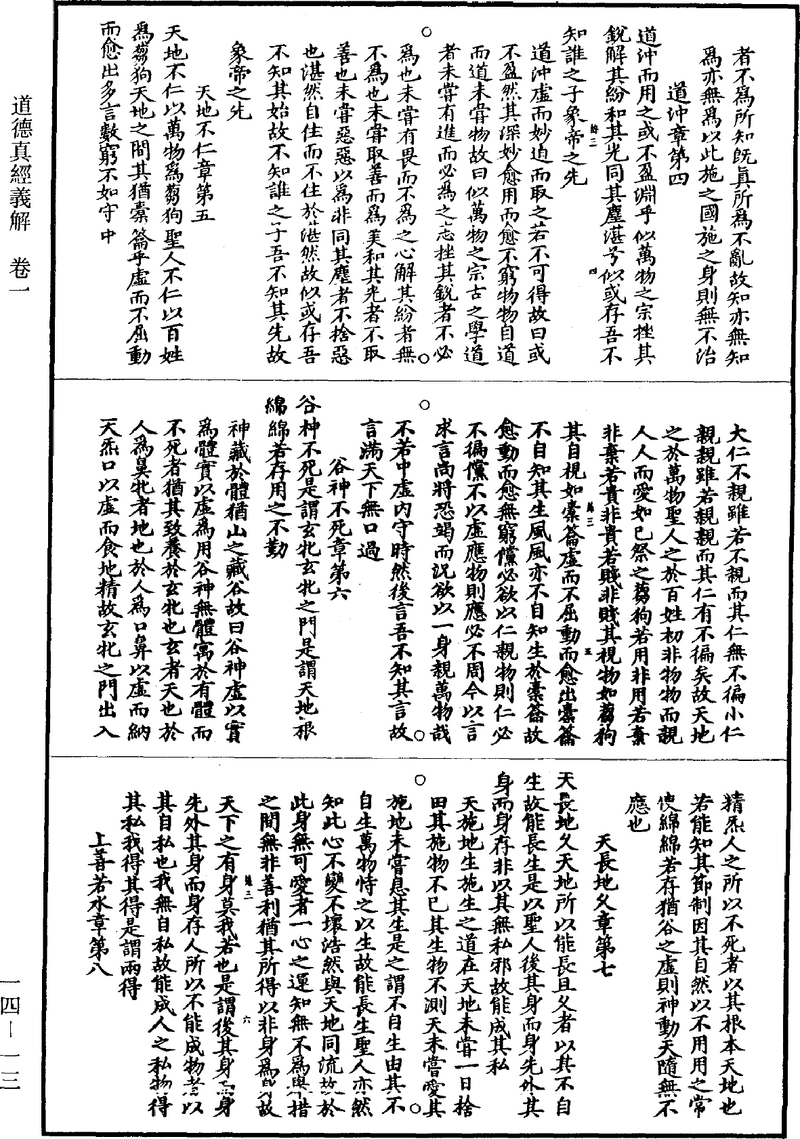 道德真經義解　卷一
者不爲所知旣眞所爲不亂故知亦無知
爲亦無爲以此施之國施之身則無不治
道沖章第四
道沖而用之或不盈淵乎似萬物之宗挫其
銳解其紛和其光同其塵湛兮似或存吾不
知誰之子象帝之先
道沖虛而妙迫而取之若不可得故曰或
不盈然其深妙愈用而愈不窮物物自道
而道未嘗物故曰似萬物之宗古之學道
者未嘗有進而必爲之志挫其銳者不必
爲也未嘗有畏而不爲之心解其紛者無
不爲也未嘗取善而爲美和其光者不取
善也未嘗惡惡以爲非同其塵者不捨惡
也湛然自住而不住於湛然故似或存吾
不知其始故不知誰之子吾不知其先故
象帝之先
天地不仁章第五
天地不仁以萬物爲芻狗聖人不仁以百姓
爲芻狗天地之間其猶橐籥乎虛而不屈動
而愈出多言數窮不如守中
大仁不親雖若不親而其仁無不徧小仁
親親雖若親親而其仁有不徧矣故天地
之於萬物聖人之於百姓初非物物而親
人人而愛如已祭之芻狗若用非用若棄
非棄若貴非貴若賤非賤其視物如芻狗
其自視如橐籥虛而不屈動而愈出橐籥
不自知其生風風亦不自知生於橐籥故
愈動而愈無窮儻必欲以仁親物則仁必
不徧儻不以虛應物則應必不周今以言
求言尚將恐竭而況欲以一身親萬物哉
不若中虛內守時然後言吾不知其言故
言滿天下無口過
谷神不死章第六
谷神不死是謂玄牝玄牝之門是謂天地根
綿綿若存用之不勤
神藏於體猶山之藏谷故曰谷神虛以實
爲體實以虛爲用谷神無體寓於有體而
不死者猶其致養於玄牝也玄者天也於
人爲鼻牝者地也於人爲口鼻以虛而納
天炁口以虛而食地精故玄牝之門出入
精炁人之所以不死者以其根本天地也
若能知其節制因其自然以不用用之常
使綿綿若存猶谷之虛則神動天隨無不
應也
天長地久章第七
天長地久天地所以能長且久者以其不自
生故能長生是以聖人後其身而身先外其
身而身存非以其無私邪故能成其私
天施地生施生之道在天地未嘗一日捨
田其施物不已其生物不測天未嘗愛其
施地未嘗息其生是之謂不自生由其不
自生萬物恃之以生故能長生聖人亦然
知此心不變不壞浩然與天地同流故於
此身無可愛者一心之運知無不爲舉措
之間無非善利猶其所得以非身爲故
天下之有身莫我若也是謂後其身而身
先外其身而身存人所以不能成物者以
其自私也我無自私故能成人之私物得
其私我得其得是謂兩得
上善若水章第八
一四—一三